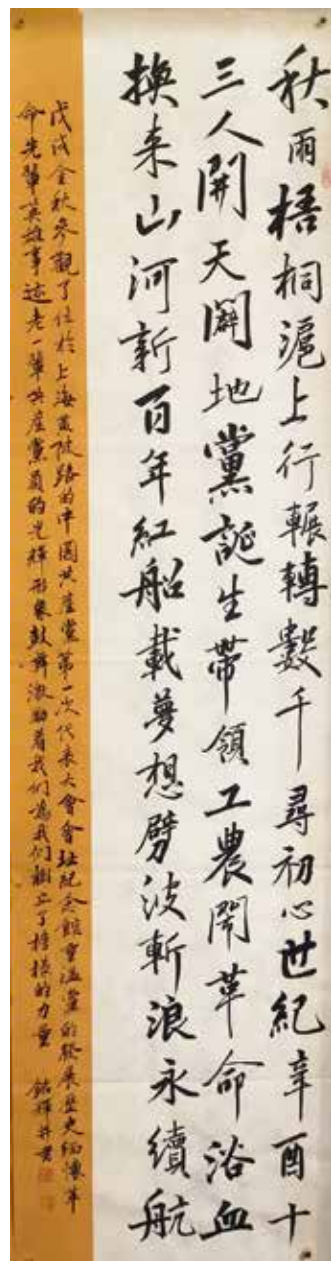 秋雨梧桐滬上行輾轉數千尋初心世紀辛酉十
三人開天闢地黨誕生帶領工農鬧革命浴血
換来山河新百年紅船載夢想劈波斬浪永續航
戊戌金秋參觀了位於上海黄陂路的中國共産黨第一次代表大會會址紀念館重温黨的發展歷史緬懷革
命先輩英雄事迹老一輩共産黨員的光輝形象鼓舞激勵着我們為我們樹立了榜樣的力量 銘輝并書